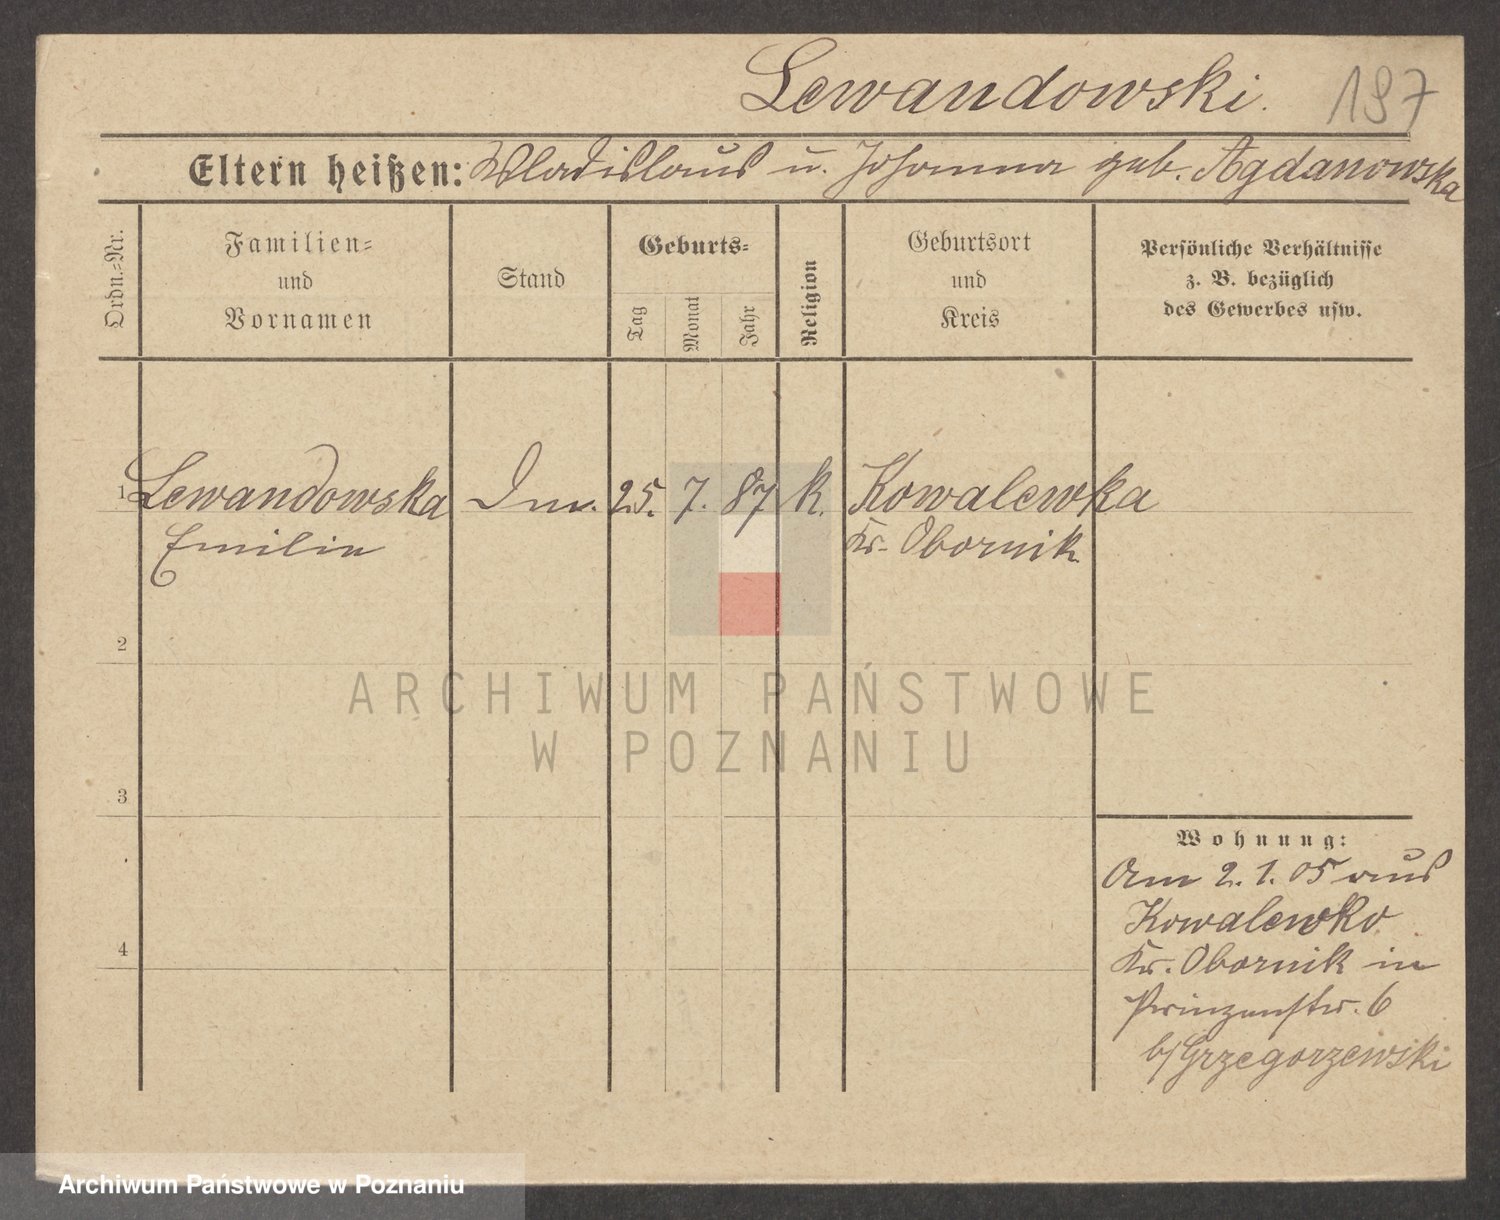 Lewandowski.
197
Eltern heißen: Wladislaus u. Johanna geb. Agdanowska
Ordn.-Nr.
Familien-
und
Vornamen
Stand
Geburts-
Tag
Monat
Jahr
Religion
Geburtsort
und
Kreis
Persönliche Verhältnisse
z. B. bezüglich
des Gewerbes usw.
1 Lewandowska
Emilie
25. 7. 87 k. Kowalewka
Kr. Obornik
2
ARCHIWUM PAŃSTWOWE
W POZNANIU
3
Wohnung:
Am 2. 1. 05 aus
Kowalewko
4
Kr. Obornik in
Prinzenstr. 6
b/Grzegorzewski
Archiwum Państwowe w Poznaniu